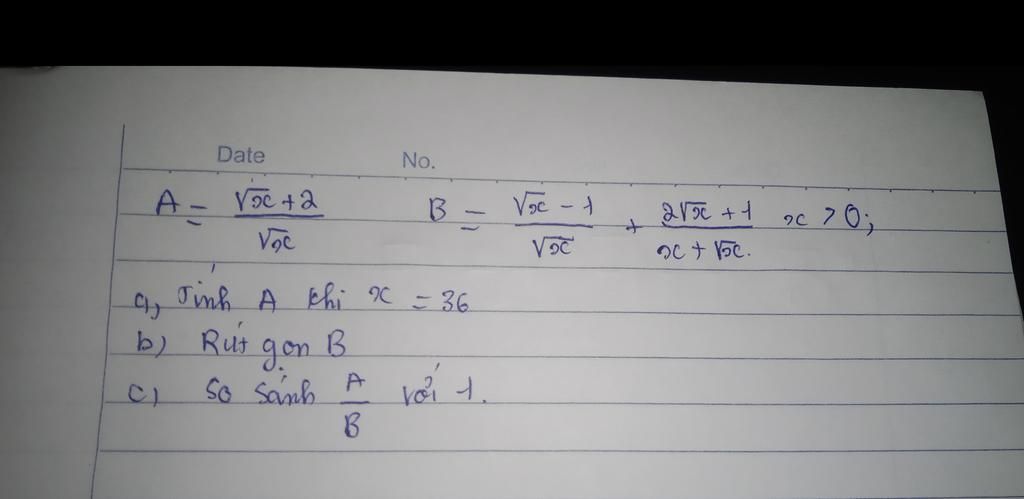 Date No.
A = (√x + 2)/√x B = (√x - 1)/√x + (2√x + 1)/(x + √x). x > 0;
a, Tính A khi x = 36
b) Rút gọn B
c) So sánh A/B với 1.